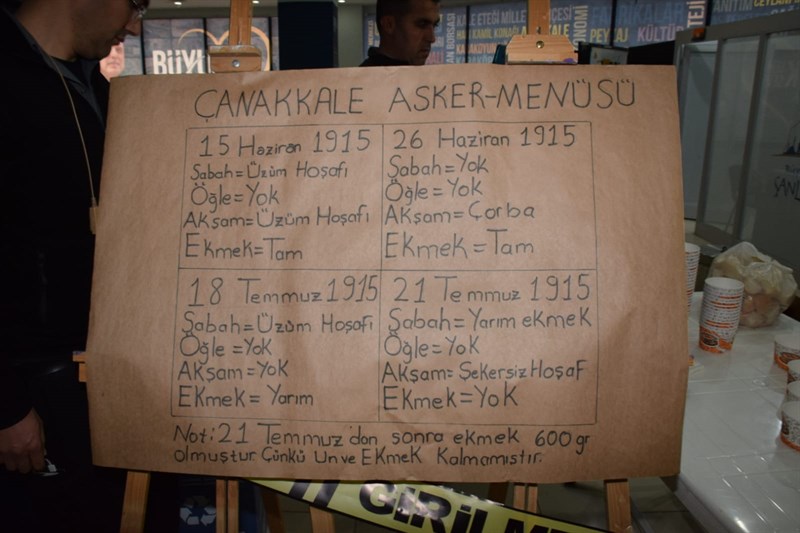 ÇANAKKALE ASKER-MENÜSÜ
15 Haziran 1915
Sabah=Üzüm Hoşafı
Öğle=Yok
Akşam=Üzüm Hoşafı
Ekmek=Tam
26 Haziran 1915
Sabah=Yok
Öğle=Yok
Akşam=Çorba
Ekmek=Tam
18 Temmuz 1915
Sabah=Üzüm Hoşafı
Öğle=Yok
Akşam=Yok
Ekmek=Yarım
21 Temmuz 1915
Sabah=Yarım ekmek
Öğle=Yok
Akşam=Şekersiz Hoşaf
Ekmek=Yok
Not: 21 Temmuz'dan sonra ekmek 600 gr
olmuştur. Çünkü Un ve Ekmek Kalmamıştır.
BÜYÜ
KÜLTÜR
GİRİLM